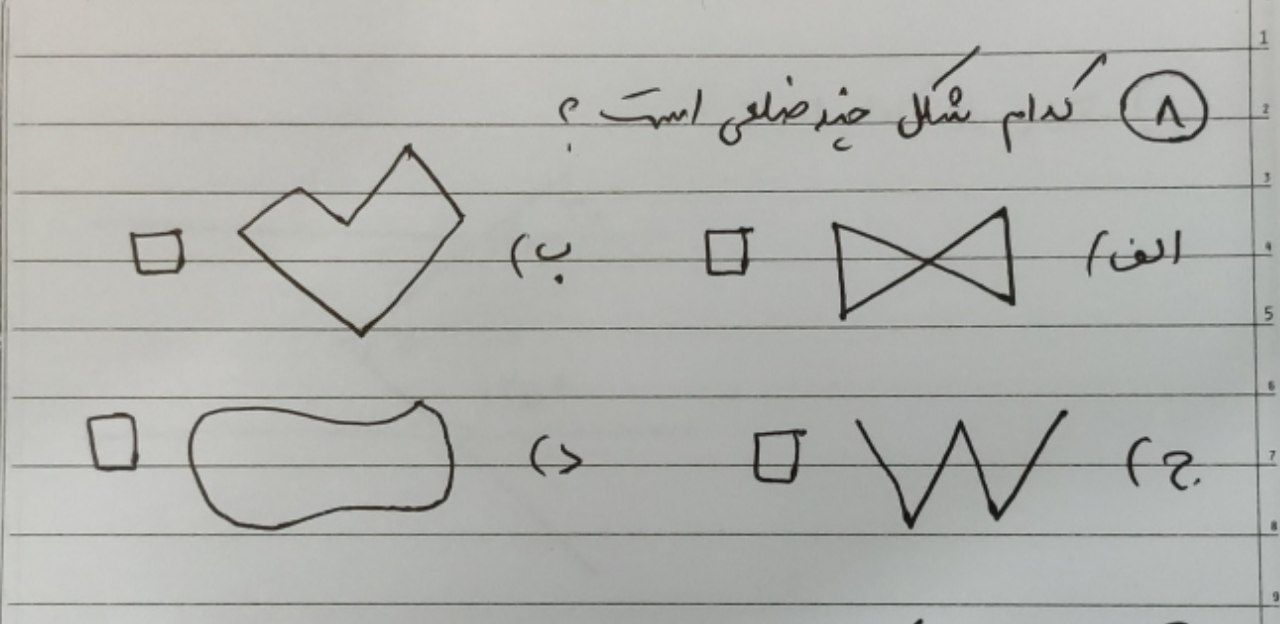 ۸ کدام شکل چندضلعی است ؟
الف) ب)
ج) د)
1
2
3
4
5
6
7
8
9